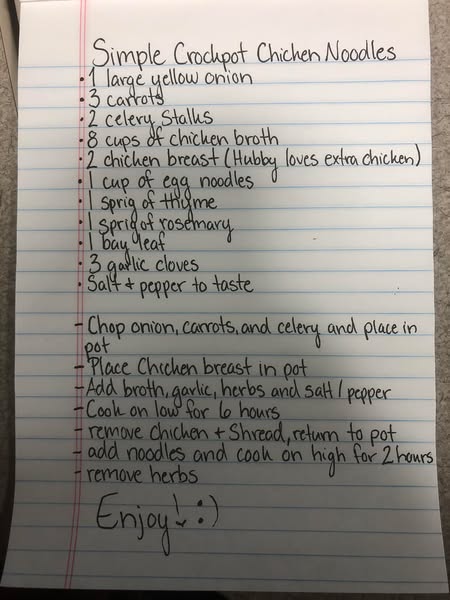 Simple Crockpot Chicken Noodles
• 1 large yellow onion
• 3 carrots
• 2 celery stalks
• 8 cups of chicken broth
• 2 chicken breast (Hubby loves extra chicken)
• 1 cup of egg noodles
• 1 sprig of thyme
• 1 sprig of rosemary
• 1 bay leaf
• 3 garlic cloves
• Salt + pepper to taste
- Chop onion, carrots, and celery and place in
pot
- Place Chicken breast in pot
- Add broth, garlic, herbs and salt / pepper
- Cook on low for 6 hours
- remove chicken + Shread, return to pot
- add noodles and cook on high for 2 hours
- remove herbs
Enjoy! :)